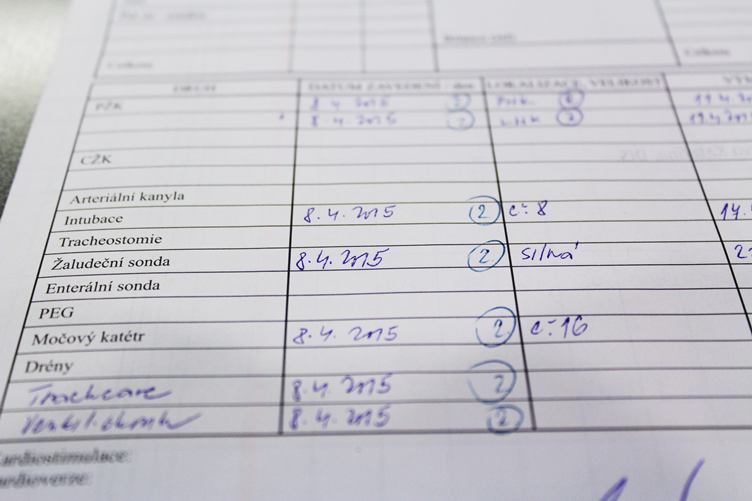 Celkem
Celkem
DRUH DATUM ZAVEDENÍ den LOKALIZACE, VELIKOST
PŽK 8.4.2015 2 PHK 2 14.4.
8.4.2015 2 LHK 2
CŽK
Arteriální kanyla
Intubace 8.4.2015 2 č. 8 14.
Tracheostomie
Žaludeční sonda 8.4.2015 2 silná 2
Enterální sonda
PEG
Močový katétr 8.4.2015 2 č. 16
Drény
Trachcare 8.4.2015 2
8.4.2015 2
Kardiostimulace: